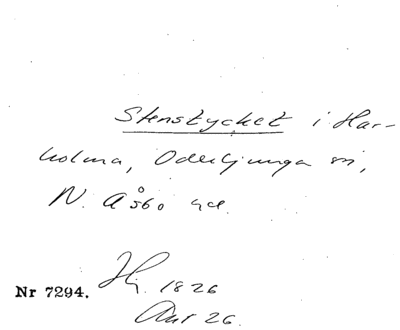 Stenstycket i Har-
holma, Oderljunga sn,
N. Åsbo hd.
Nr 7294. Hj. 1826
Avt 26.